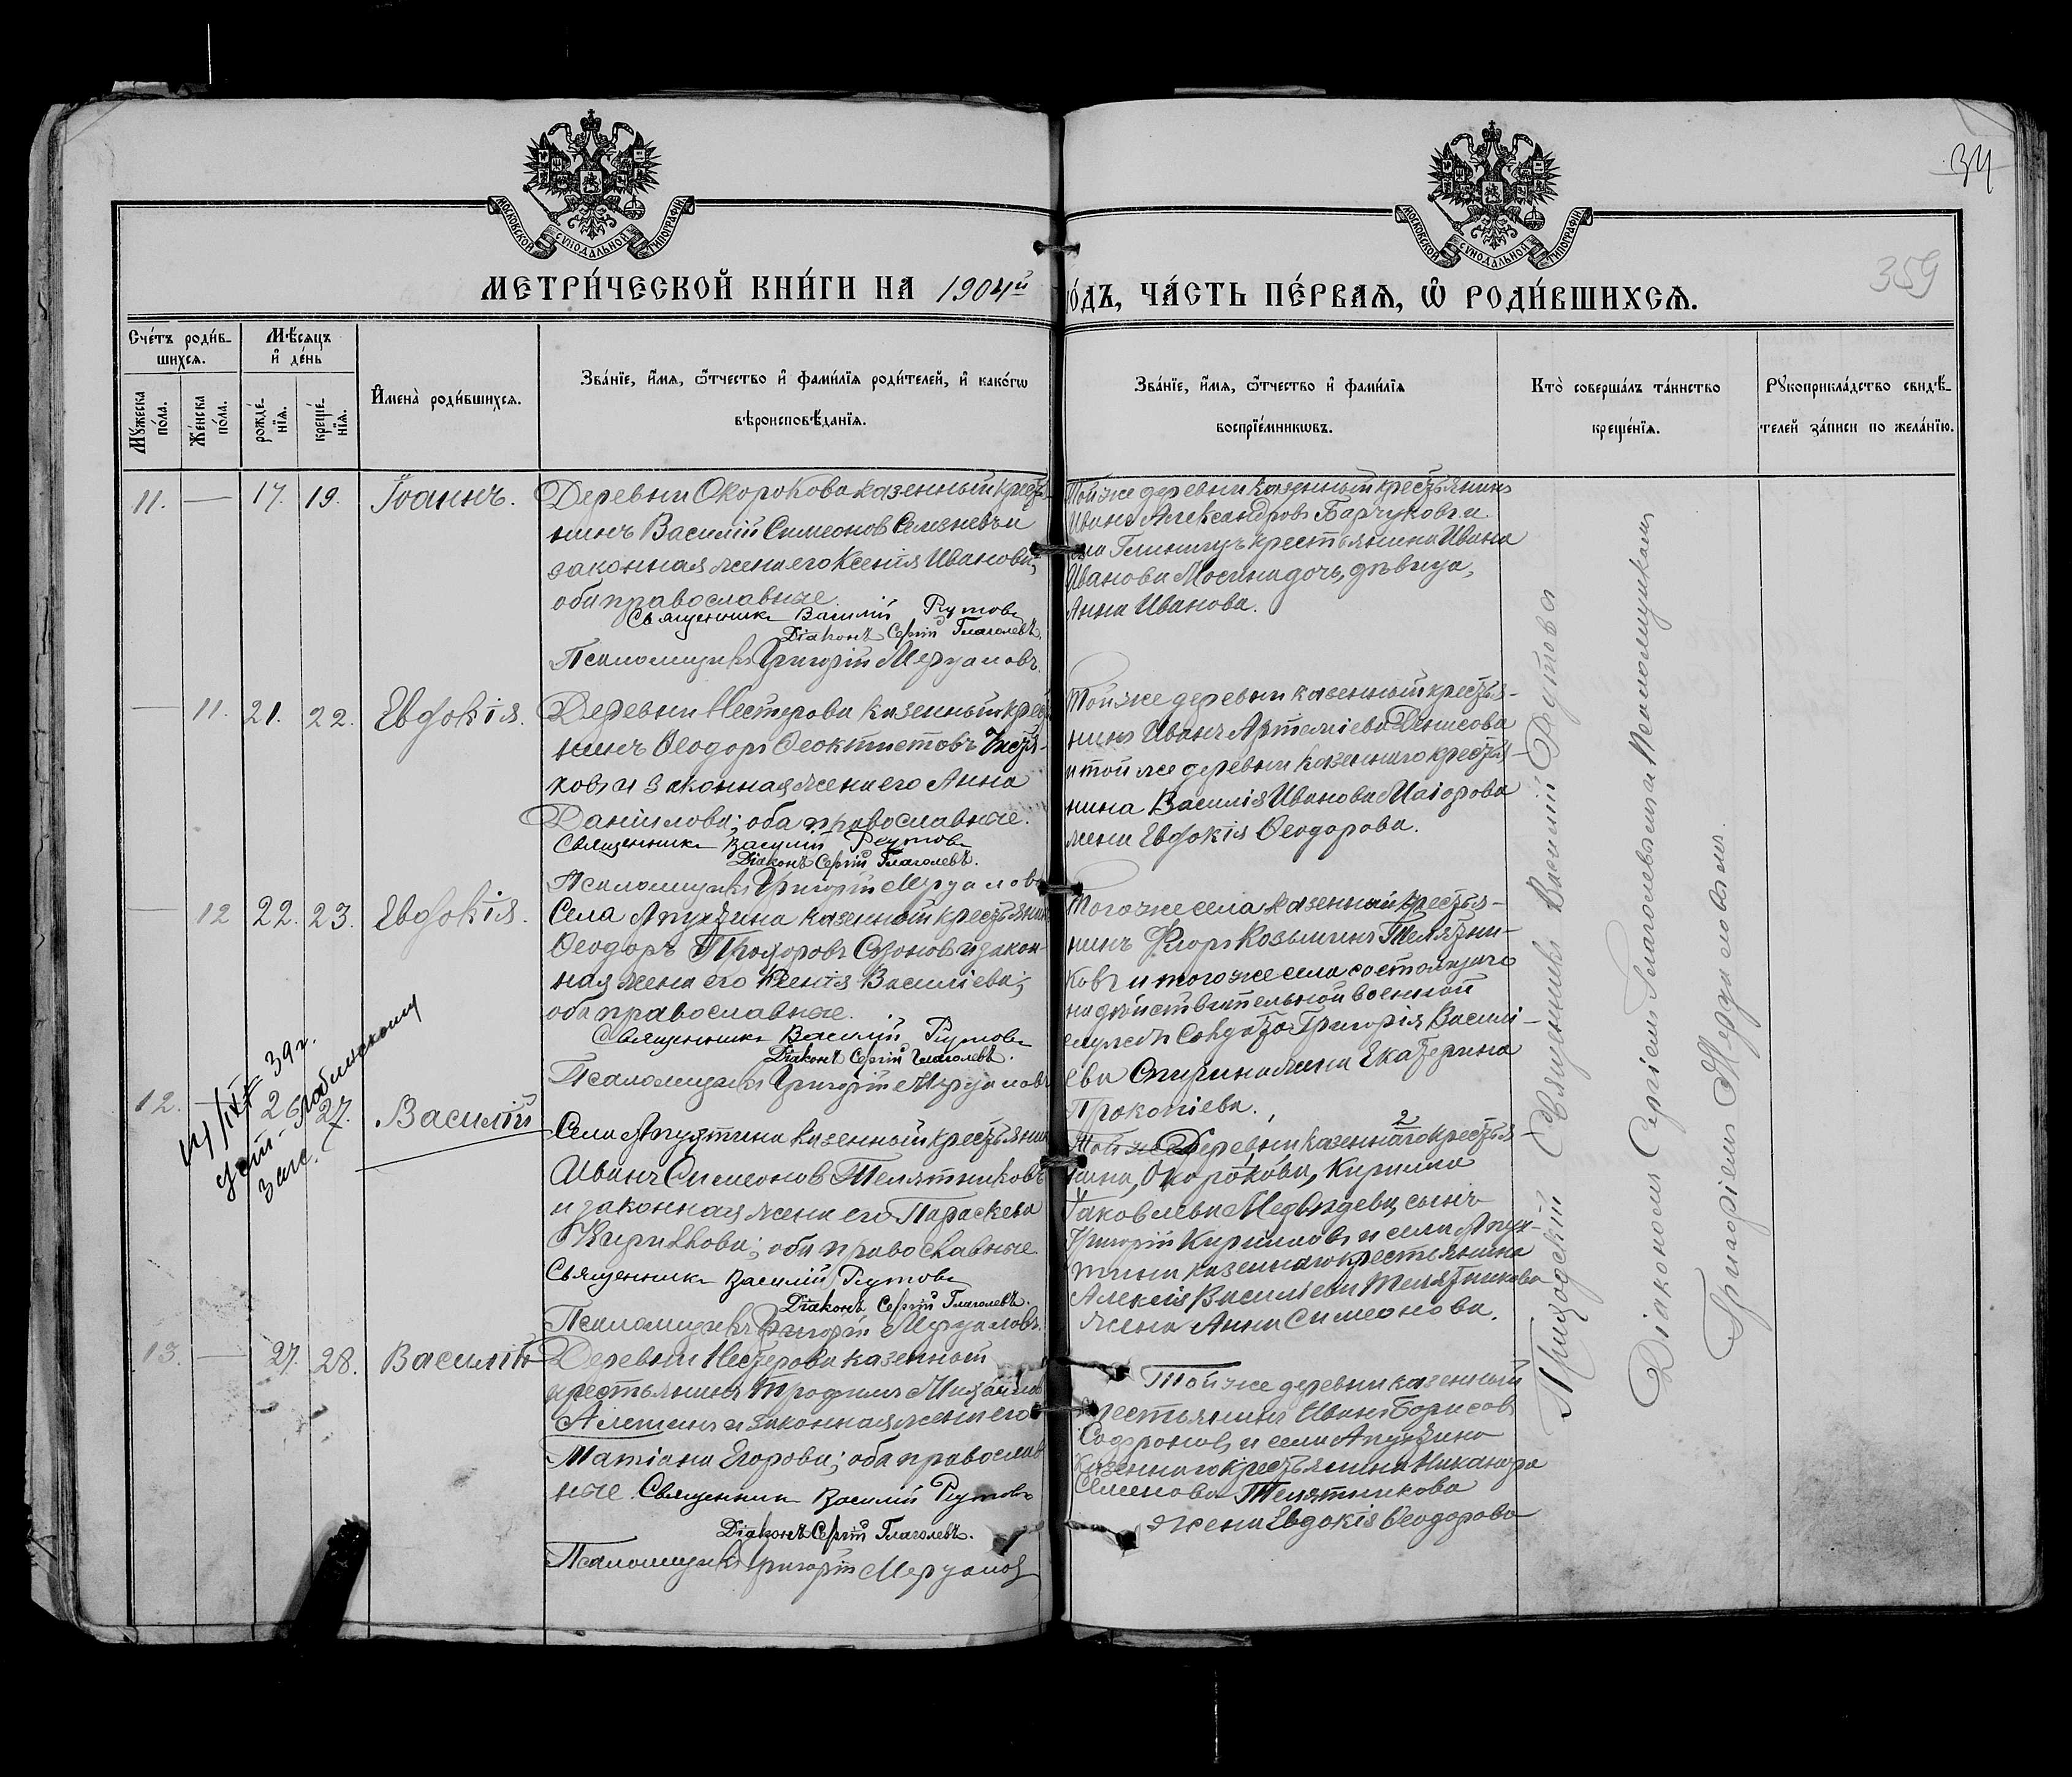 34
359
МОСКОВСКОЙ СѴНОДАЛЬНОЙ ТИПОГРАФІИ
МОСКОВСКОЙ СѴНОДАЛЬНОЙ ТИПОГРАФІИ
МЕТРИ́ЧЕСКОЙ КНИ́ГИ НА 1904й
ГО́ДЪ, ЧА́СТЬ ПЕ́РВАѦ, Ѡ҆ РОДИ́ВШИХСѦ.
Сче́тъ роди́в-
шихсѧ.
Мѣ́сѧцъ
и҆ де́нь
Мꙋ́жеска
по́ла.
Же́нска
по́ла.
рожде́-
нїѧ.
креще́-
нїѧ.
И҆мена̀ роди́вшихсѧ.
Зва́нїе, и҆́мѧ, ѻ҆́тчество и҆ фами́лїѧ роди́телей, и҆ како́гѡ
вѣроисповѣ́данїѧ.
Зва́нїе, и҆́мѧ, ѻ҆́тчество и҆ фами́лїѧ
воспрїе́мникѡвъ.
Кто̀ соверша́лъ та́инство
креще́нїѧ.
Рꙋкоприкла́дство свидѣ́-
телей за́писи по жела́нїю.
11. — 17. 19. Іоаннъ.
Деревни Окорокова казенный крестья-
нинъ Василій Симеоновъ Селезневъ и
законная жена его Ксенія Иванова;
оба православные.
Священникъ Василій Рутовъ
Діаконъ Сергій Глаголевъ.
Псаломщикъ Григорій Мерцаловъ.
Той же деревни казенный крестьянинъ
Иванъ Александровъ Барчуковъ и
крестьянина Ивана
Иванова Мосина дочь, дѣвица,
Анна Иванова.
— 11. 21. 22. Евдокія.
Деревни Нестерова казенный крес
нинъ Ѳеодоръ Ѳеоктистовъ
ковъ и законная жена его Анна
Даніилова; оба православные.
Священникъ Василій Рутовъ
Діаконъ Сергій Глаголевъ.
Псаломщикъ Григорій Мерцаловъ
Той же деревни казенный крестья-
нинъ Иванъ Артеміевъ Денисовъ
и той же деревни казеннаго крестья-
нина Василія Иванова Маіорова
жена Евдокія Ѳеодорова.
— 12 22. 23. Евдокія.
Села Апухтина казенный крестьянин
Ѳеодоръ Прохоровъ Созоновъ и закон-
ная жена его Ксенія Василіева;
оба православные.
Священникъ Василій Рутовъ
Діаконъ Сергій Глаголевъ.
Псаломщикъ Григорій Мерцаловъ
Того же села казенный крестья-
нинъ Флоръ Козьминъ Телятни-
ковъ и того же села состоящаго
на дѣйствительной военной
службѣ солдата Григорія Василі-
ева Спирина жена Екатерина
Прокопіева.
39 г.
12. — 26. 27. Василій
Села Апухтина казенный крестьянин
Иванъ Симеоновъ Телятниковъ
и законная жена его Параскева
Кирилова; оба православные
Священникъ Василій Рутовъ
Діаконъ Сергій Глаголевъ.
Псаломщикъ Григорій Мерцаловъ.
2
Той же Деревни казеннаго крестья-
нина, Окорокова, Кирилла
Іаковлева Медвѣдева, сынъ
Григорій Кирилловъ и села Апух-
тина казеннаго крестьянина
Алексія Василіева Телятникова
жена Анна Симеонова.
13. — 27. 28. Василій
Деревни Нестерова казенный
крестьянинъ Трофимъ Михаилов
Алетинъ и законная жена его
Татіана Егорова; оба православ
ные. Священникъ Василій Рутовъ
Діаконъ Сергій Глаголевъ.
Псаломщикъ Григорій Мерцалов
Той же деревни казенный
крестьянинъ Иванъ Борисовъ
Софроновъ и села Апухтина
Казеннаго крестьянина Никанора
Семенова Телятникова
жена Евдокія Ѳеодорова
Приходскій Священникъ Василій Рутовъ
Діакономъ Сергіемъ Глаголевымъ и Псаломщикомъ
Григоріемъ Мерцаловымъ.